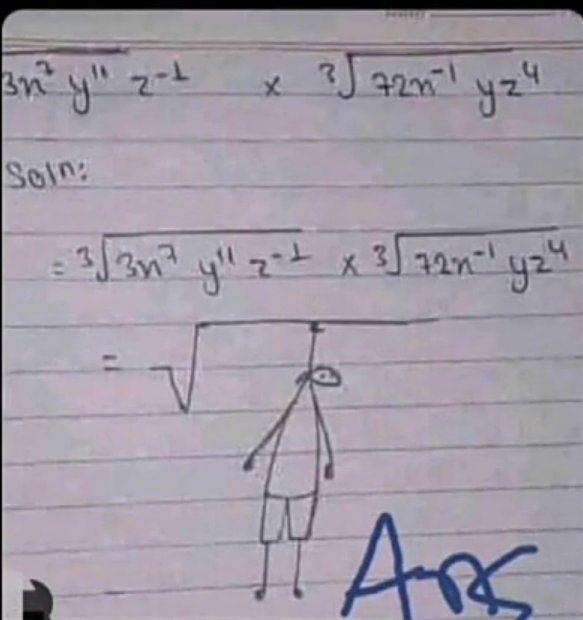 3n⁷ y¹¹ z⁻¹ × ³√72n⁻¹ yz⁴
Soln:
= ³√3n⁷ y¹¹ z⁻¹ × ³√72n⁻¹ yz⁴
= √
Ans